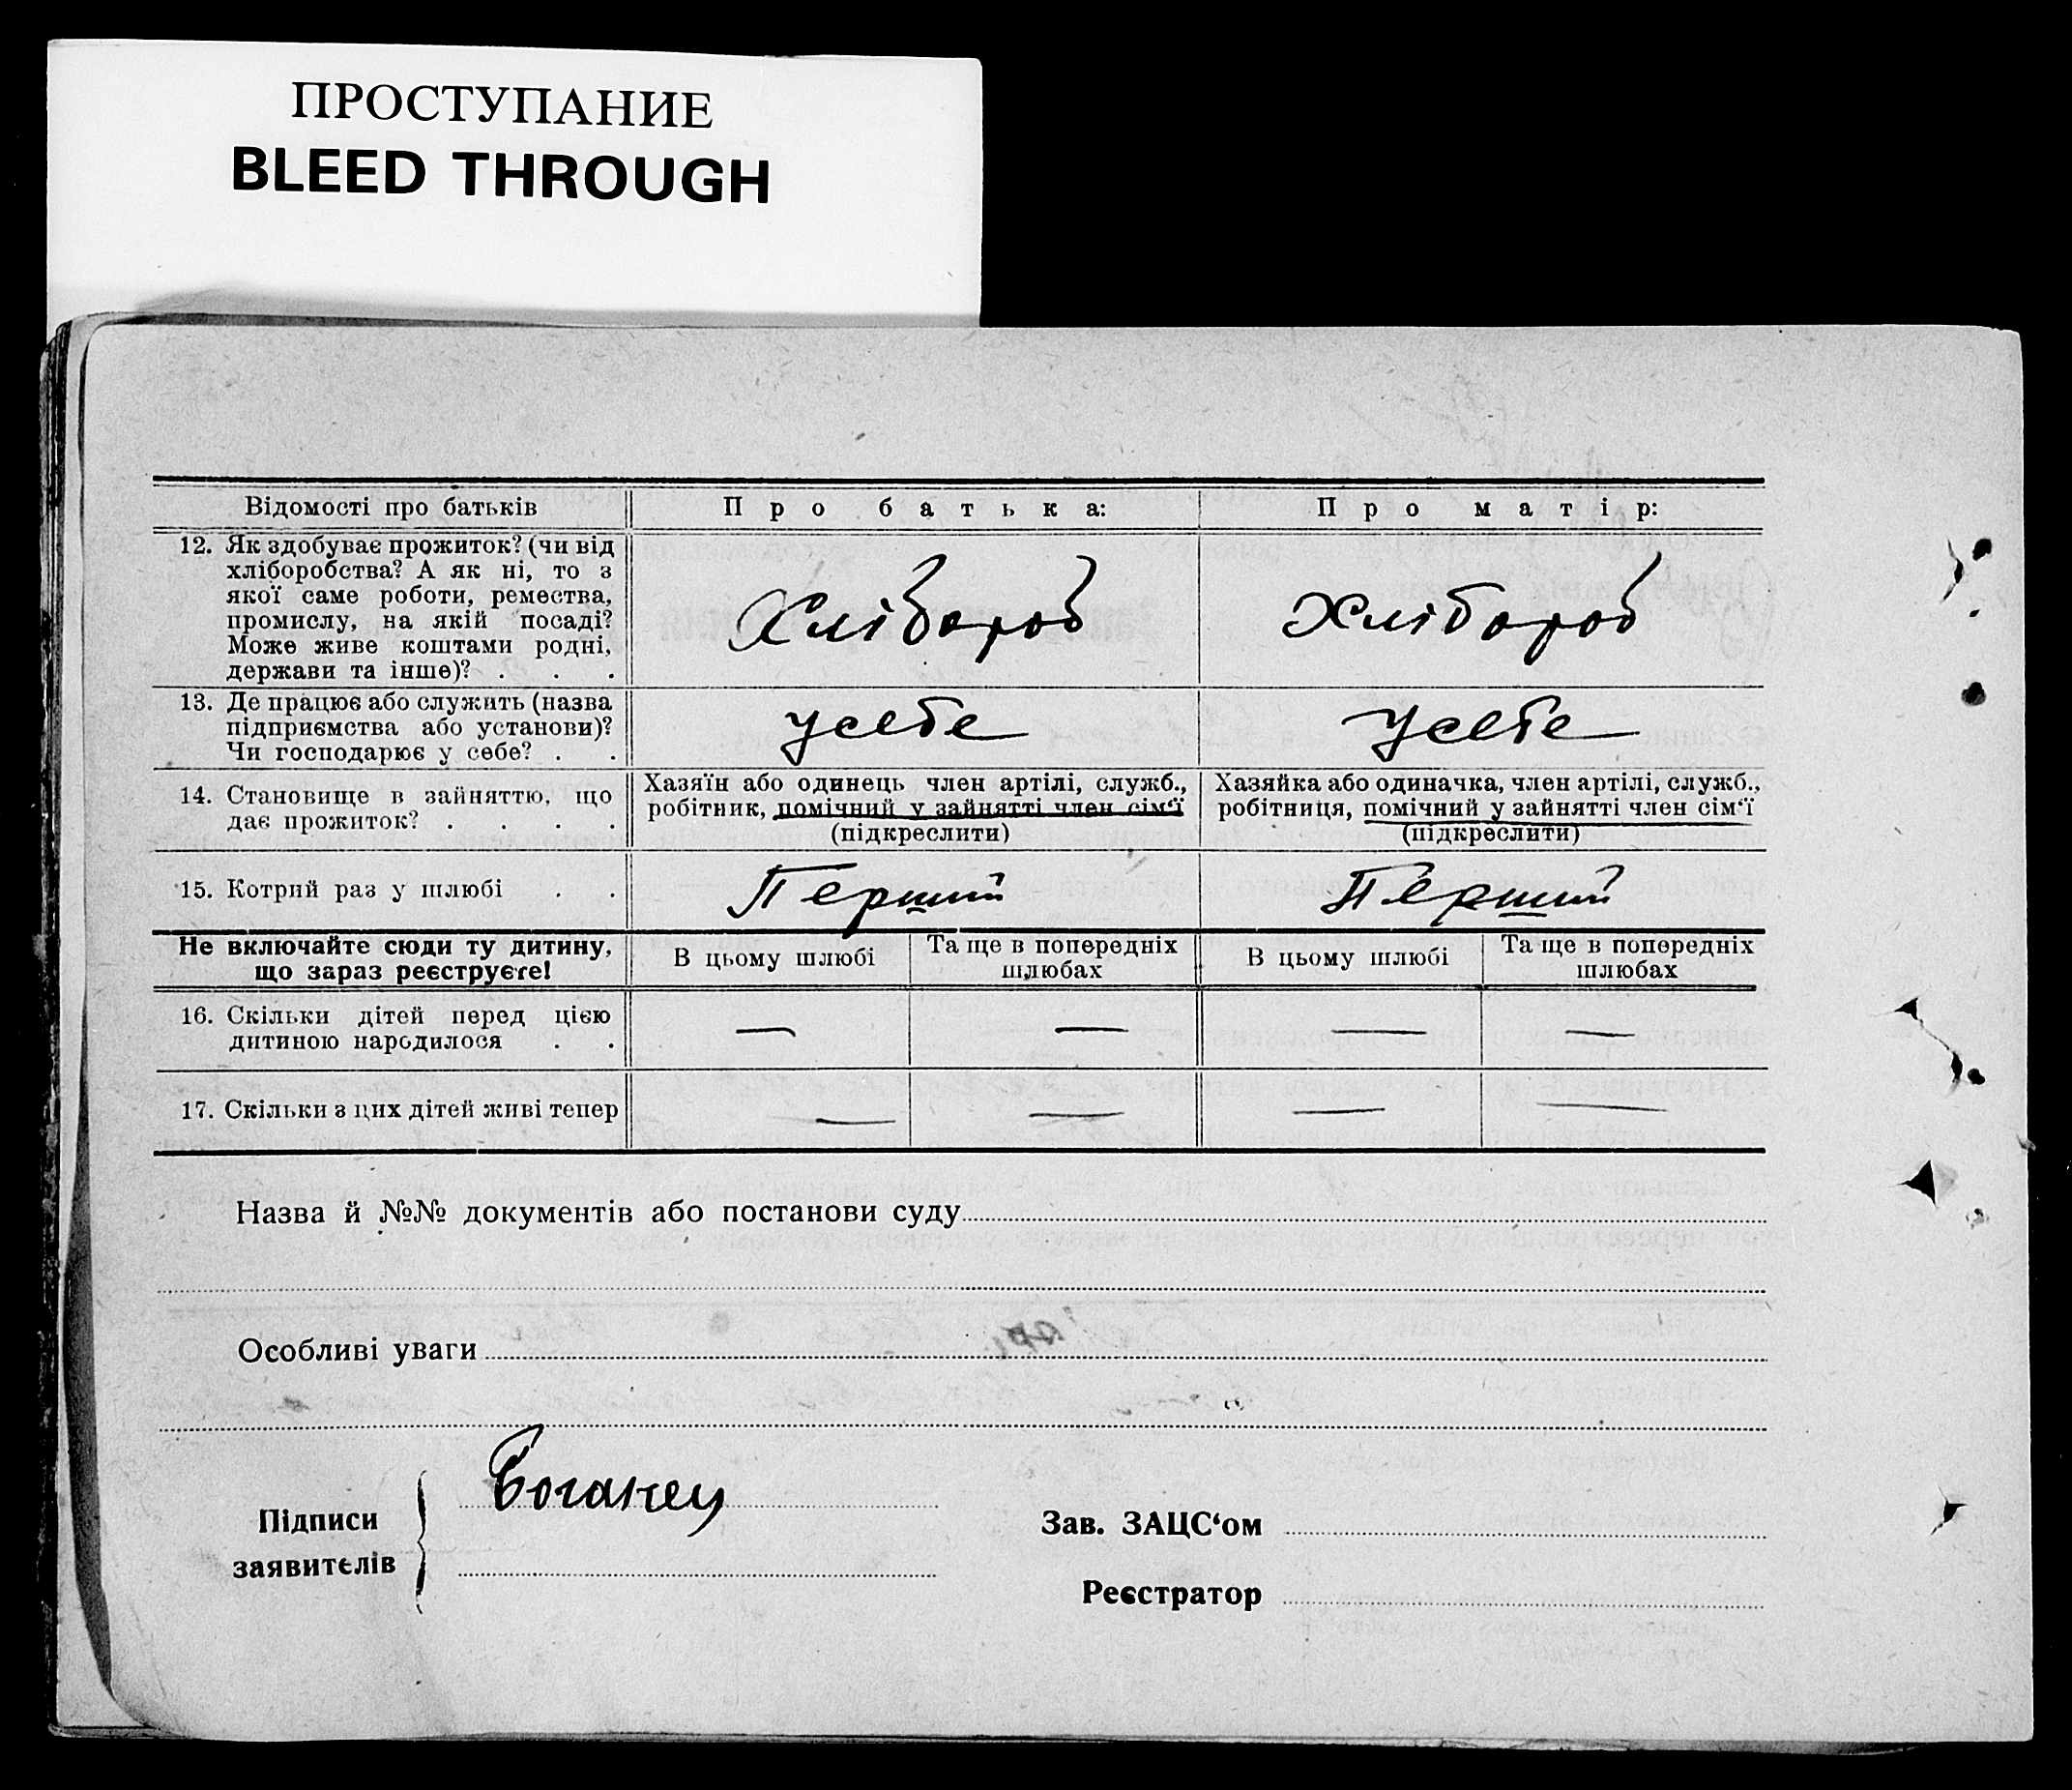 ПРОСТУПАНИЕ
BLEED THROUGH
Відомості про батьків
Про батька:
Про матір:
12. Як здобуває прожиток? (чи від
хліборобства? А як ні, то з
якої саме роботи, ремества,
промислу, на якій посаді?
Може живе коштами родні,
держави та інше)? . . .
Хлібороб
Хлібороб
13. Де працює або служить (назва
підприємства або установи)?
Чи господарює у себе? . .
У себе
У себе
14. Становище в зайняттю, що
дає прожиток? . . . .
Хазяїн або одинець член артілі, служб.,
робітник, помічний у зайнятті член сім‘ї
(підкреслити)
Хазяйка або одиначка, член артілі, служб.,
робітниця, помічний у зайнятті член сім‘ї
(підкреслити)
15. Котрий раз у шлюбі . .
Перший
Перший
Не включайте сюди ту дитину,
що зараз реєструєте!
В цьому шлюбі
Та ще в попередніх
шлюбах
В цьому шлюбі
Та ще в попередніх
шлюбах
16. Скільки дітей перед цією
дитиною народилося . .
—
—
—
—
17. Скільки з цих дітей живі тепер
—
—
—
—
Назва й №№ документів або постанови суду
Особливі уваги
Підписи
заявителів
Боганец
Зав. ЗАЦС‘ом
Реєстратор